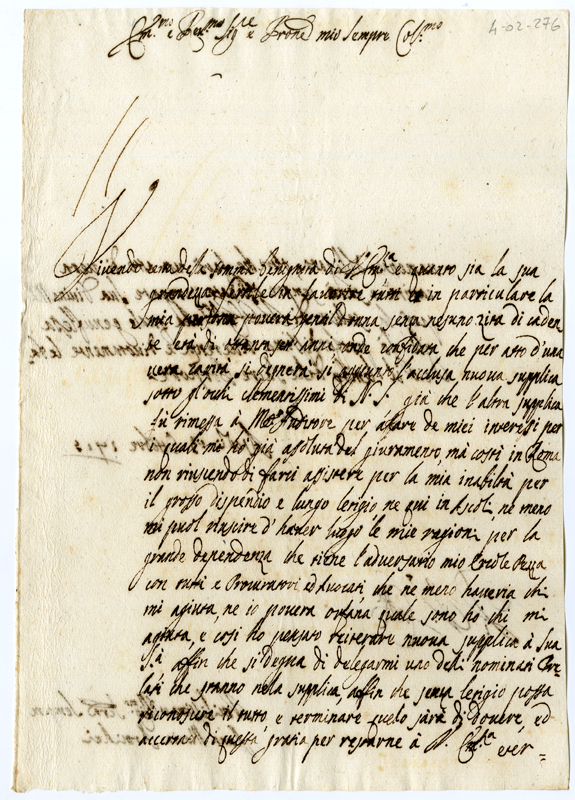 4-02-276
Em.mo e Rev.mo Sig.re e Prone mio sempre Col.mo
Vivendo della somma benignità di V. Em.za e quanto sia la sua
grandezza favorire tutti in particulare la
mia povera donna, senza nesuno
età di anni confidata, che per atto d'una
vera carità si degnerà l'acclusa nuova supplica
sotto gl'occhi clementissimi di N. S. già che l'altra supplica
fù rimessa à Mo Auditore per affare de miei interessi per
i quale mi hò già del giuramento, mà costì in Roma
non riuscendo di farci assistere per la mia inabiltà per
il grosso dispendio e lungo letigio, ne qui in Ascoli, ne meno
mi puol riuscire d'haver luogo le mie ragioni per la
grande dependenza che tiene l'adversario mio Ercole
con tutti e Procuratori ed Avocati che ne meno haveria chi
mi agiuta, ne io povera orfana quale sono hò chi mi
agiuta, e così hò pensato reiterare nuova supplica à Sua
S.tà affin che si degna di delegarmi uno de nominati Pre-
lati che stanno nela supplica, affin che senza letigio possa
riconoscere il tutto e terminare quelo sarà di dovere, ed
accerta di questa gratia per restarne à V. Em.za